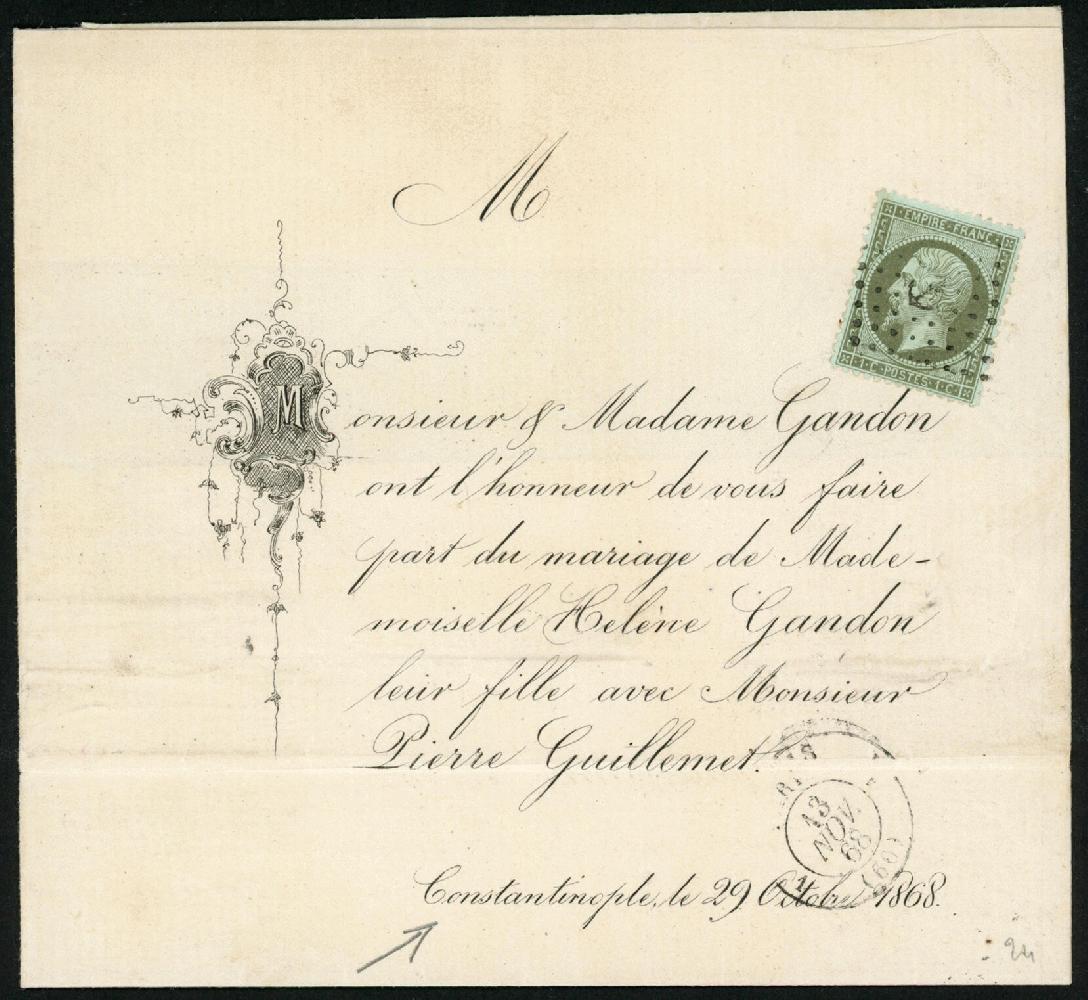 M
EMPIRE · FRANC
1 · C · POSTES · 1 · C
Monsieur & Madame Gandon
ont l'honneur de vous faire
part du mariage de Made-
moiselle Helène Gandon
leur fille avec Monsieur
Pierre Guillemet.
13
NOV.
68
(60)
Constantinople, le 29 Octobre 1868.